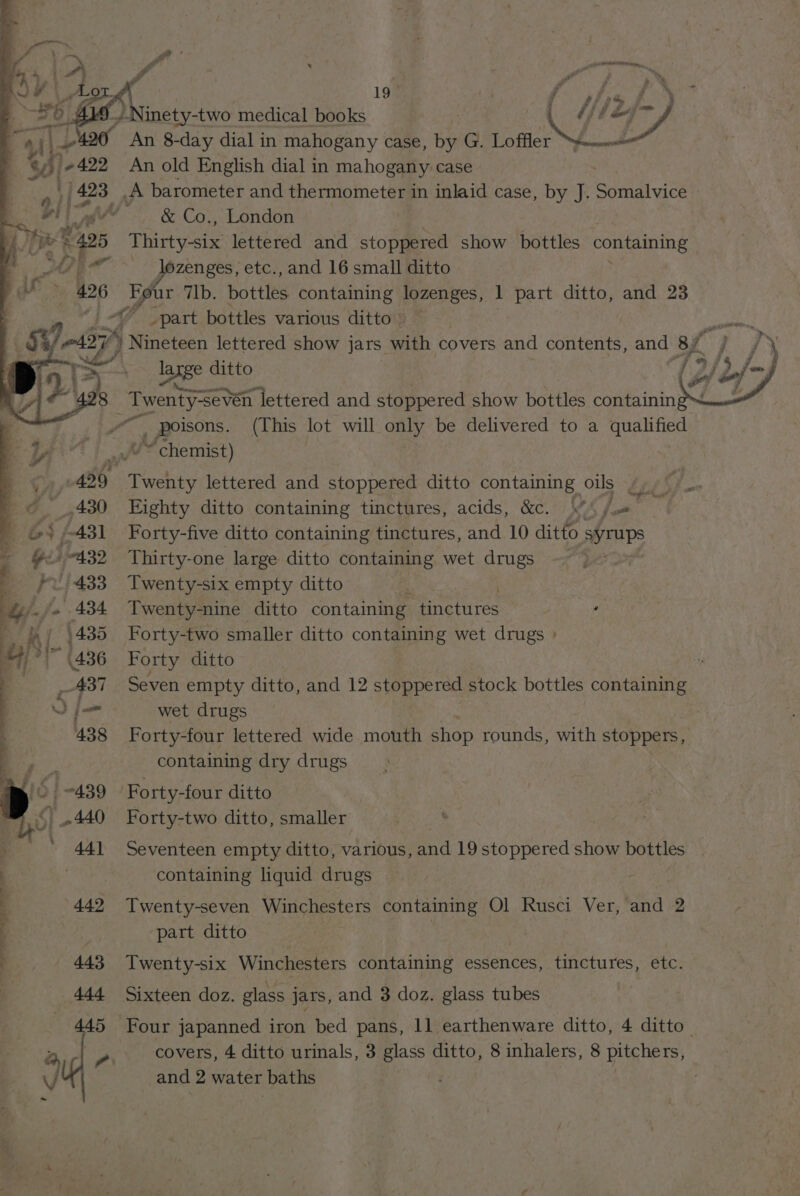 19
Lot
419 Ninety-two medical books
420 An 8-day dial in mahogany case, by G. Loffler
422 An old English dial in mahogany case
423 A barometer and thermometer in inlaid case, by J. Somalvice
& Co., London
425 Thirty-six lettered and stoppered show bottles containing
lozenges, etc., and 16 small ditto
426 Four 7lb. bottles containing lozenges, 1 part ditto, and 23
part bottles various ditto
427 Nineteen lettered show jars with covers and contents, and 8
large ditto
428 Twenty-seven lettered and stoppered show bottles containing
poisons. (This lot will only be delivered to a qualified
chemist)
429 Twenty lettered and stoppered ditto containing oils
430 Eighty ditto containing tinctures, acids, &c.
431 Forty-five ditto containing tinctures, and 10 ditto syrups
432 Thirty-one large ditto containing wet drugs
433 Twenty-six empty ditto
434 Twenty-nine ditto containing tinctures
435 Forty-two smaller ditto containing wet drugs
436 Forty ditto
437 Seven empty ditto, and 12 stoppered stock bottles containing
wet drugs
438 Forty-four lettered wide mouth shop rounds, with stoppers,
containing dry drugs
439 Forty-four ditto
440 Forty-two ditto, smaller
441 Seventeen empty ditto, various, and 19 stoppered show bottles
containing liquid drugs
442 Twenty-seven Winchesters containing Ol Rusci Ver, and 2
part ditto
443 Twenty-six Winchesters containing essences, tinctures, etc.
444 Sixteen doz. glass jars, and 3 doz. glass tubes
445 Four japanned iron bed pans, 11 earthenware ditto, 4 ditto
covers, 4 ditto urinals, 3 glass ditto, 8 inhalers, 8 pitchers,
and 2 water baths